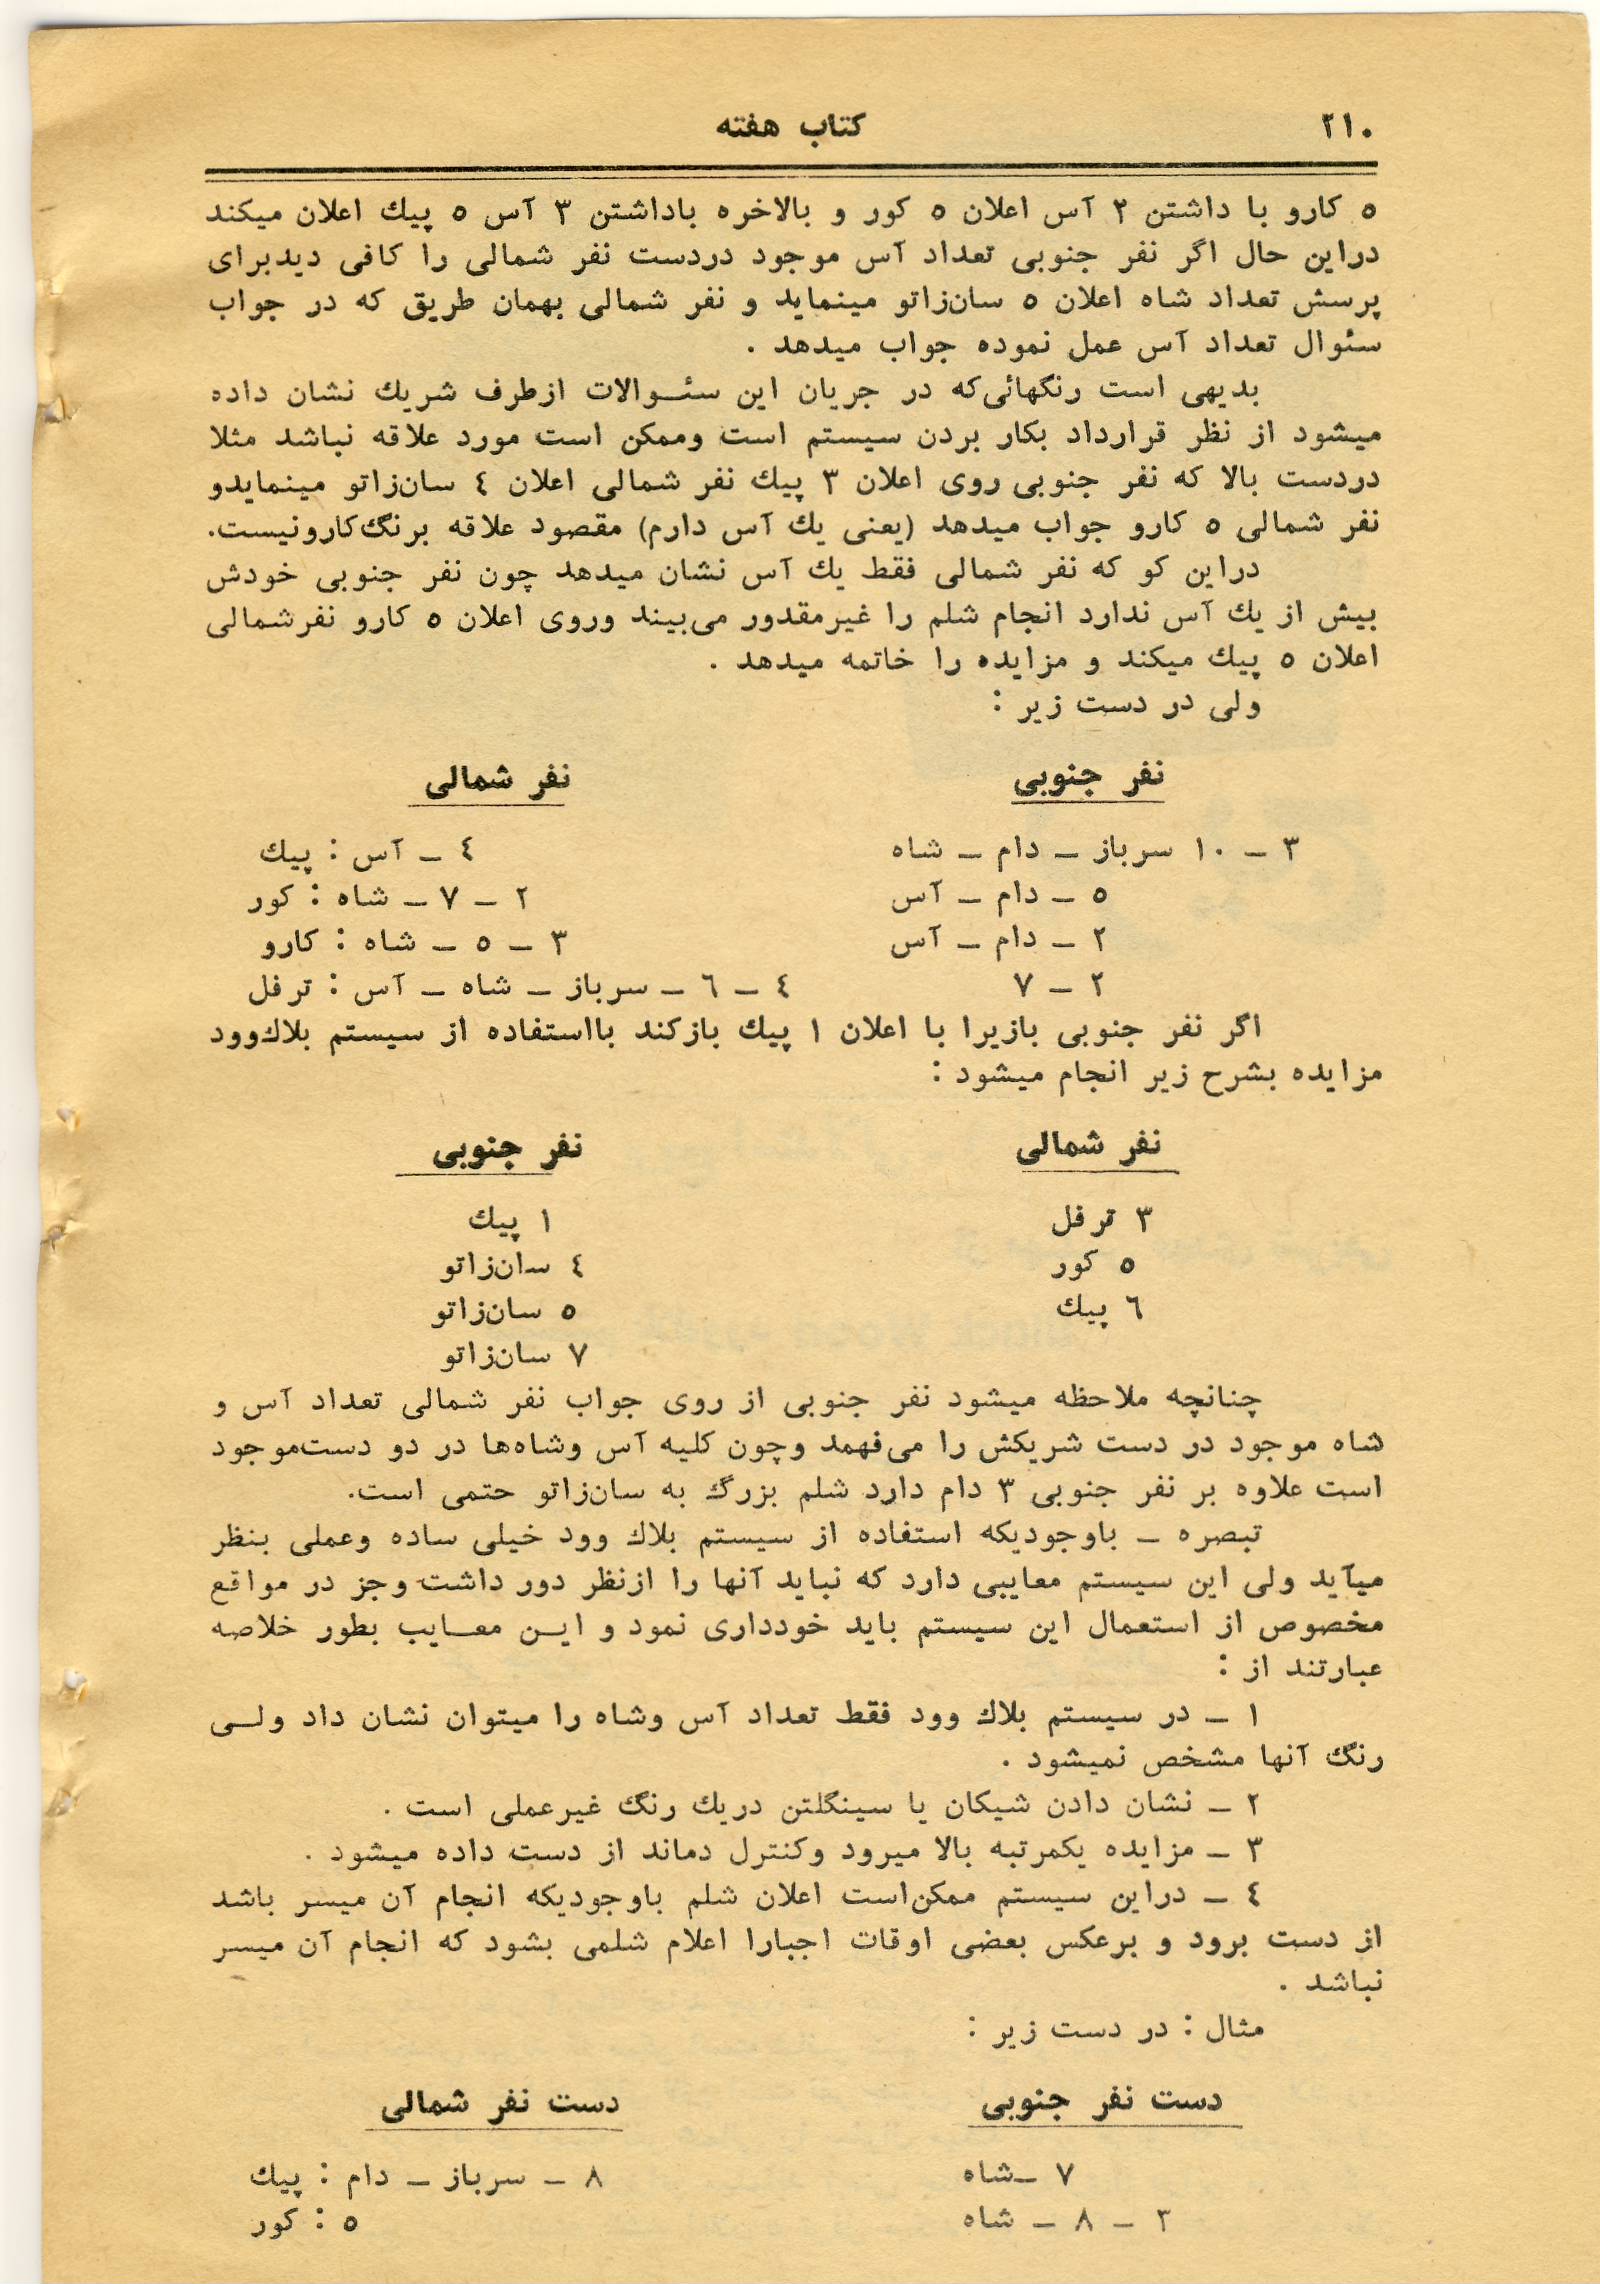 ۲۱۰ کتاب هفته
۵ کارو با داشتن ۲ آس اعلان ۵ کور و بالاخره باداشتن ۳ آس ۵ پیك اعلان میکند
دراین حال اگر نفر جنوبی تعداد آس موجود دردست نفر شمالی را کافی دیدبرای
پرسش تعداد شاه اعلان ۵ سان‌زاتو مینماید و نفر شمالی بهمان طریق که در جواب
سئوال تعداد آس عمل نموده جواب میدهد .
بدیهی است رنگهائی‌که در جریان این سئـوالات ازطرف شریك نشان داده
میشود از نظر قرارداد بکار بردن سیستم است وممکن است مورد علاقه نباشد مثلا
دردست بالا که نفر جنوبی روی اعلان ۳ پیك نفر شمالی اعلان ٤ سان‌زاتو مینمایدو
نفر شمالی ۵ کارو جواب میدهد (یعنی یك آس دارم) مقصود علاقه برنگ‌کارونیست.
دراین کو که نفر شمالی فقط یك آس نشان میدهد چون نفر جنوبی خودش
بیش از یك آس ندارد انجام شلم را غیرمقدور می‌بیند وروی اعلان ۵ کارو نفرشمالی
اعلان ۵ پیك میکند و مزایده را خاتمه میدهد .
ولی در دست زیر :
نفر جنوبی نفر شمالی
۳ – ۱۰ سرباز – دام – شاه ٤ – آس : پیك
۵ – دام – آس ۲ – ۷ – شاه : کور
۲ – دام – آس ۳ – ۵ – شاه : کارو
۲ – ۷ ٤ – ٦ – سرباز – شاه – آس : ترفل
اگر نفر جنوبی بازیرا با اعلان ۱ پیك بازکند بااستفاده از سیستم بلاك‌وود
مزایده بشرح زیر انجام میشود :
نفر شمالی نفر جنوبی
۳ ترفل ۱ پیك
۵ کور ٤ سان‌زاتو
٦ پیك ۵ سان‌زاتو
۷ سان‌زاتو
چنانچه ملاحظه میشود نفر جنوبی از روی جواب نفر شمالی تعداد آس و
شاه موجود در دست شریکش را می‌فهمد وچون کلیه آس وشاه‌ها در دو دست‌موجود
است علاوه بر نفر جنوبی ۳ دام دارد شلم بزرگ به سان‌زاتو حتمی است.
تبصره – باوجودیکه استفاده از سیستم بلاك وود خیلی ساده وعملی بنظر
میآید ولی این سیستم معایبی دارد که نباید آنها را ازنظر دور داشت وجز در مواقع
مخصوص از استعمال این سیستم باید خودداری نمود و ایـن معـایب بطور خلاصه
عبارتند از :
۱ – در سیستم بلاك وود فقط تعداد آس وشاه را میتوان نشان داد ولـی
رنگ آنها مشخص نمیشود .
۲ – نشان دادن شیکان یا سینگلتن دریك رنگ غیرعملی است .
۳ – مزایده یکمرتبه بالا میرود وکنترل دماند از دست داده میشود .
٤ – دراین سیستم ممکن‌است اعلان شلم باوجودیکه انجام آن میسر باشد
از دست برود و برعکس بعضی اوقات اجبارا اعلام شلمی بشود که انجام آن میسر
نباشد .
مثال : در دست زیر :
دست نفر جنوبی دست نفر شمالی
۷ –شاه ۸ – سرباز – دام : پیك
۲ – ۸ – شاه ۵ : کور